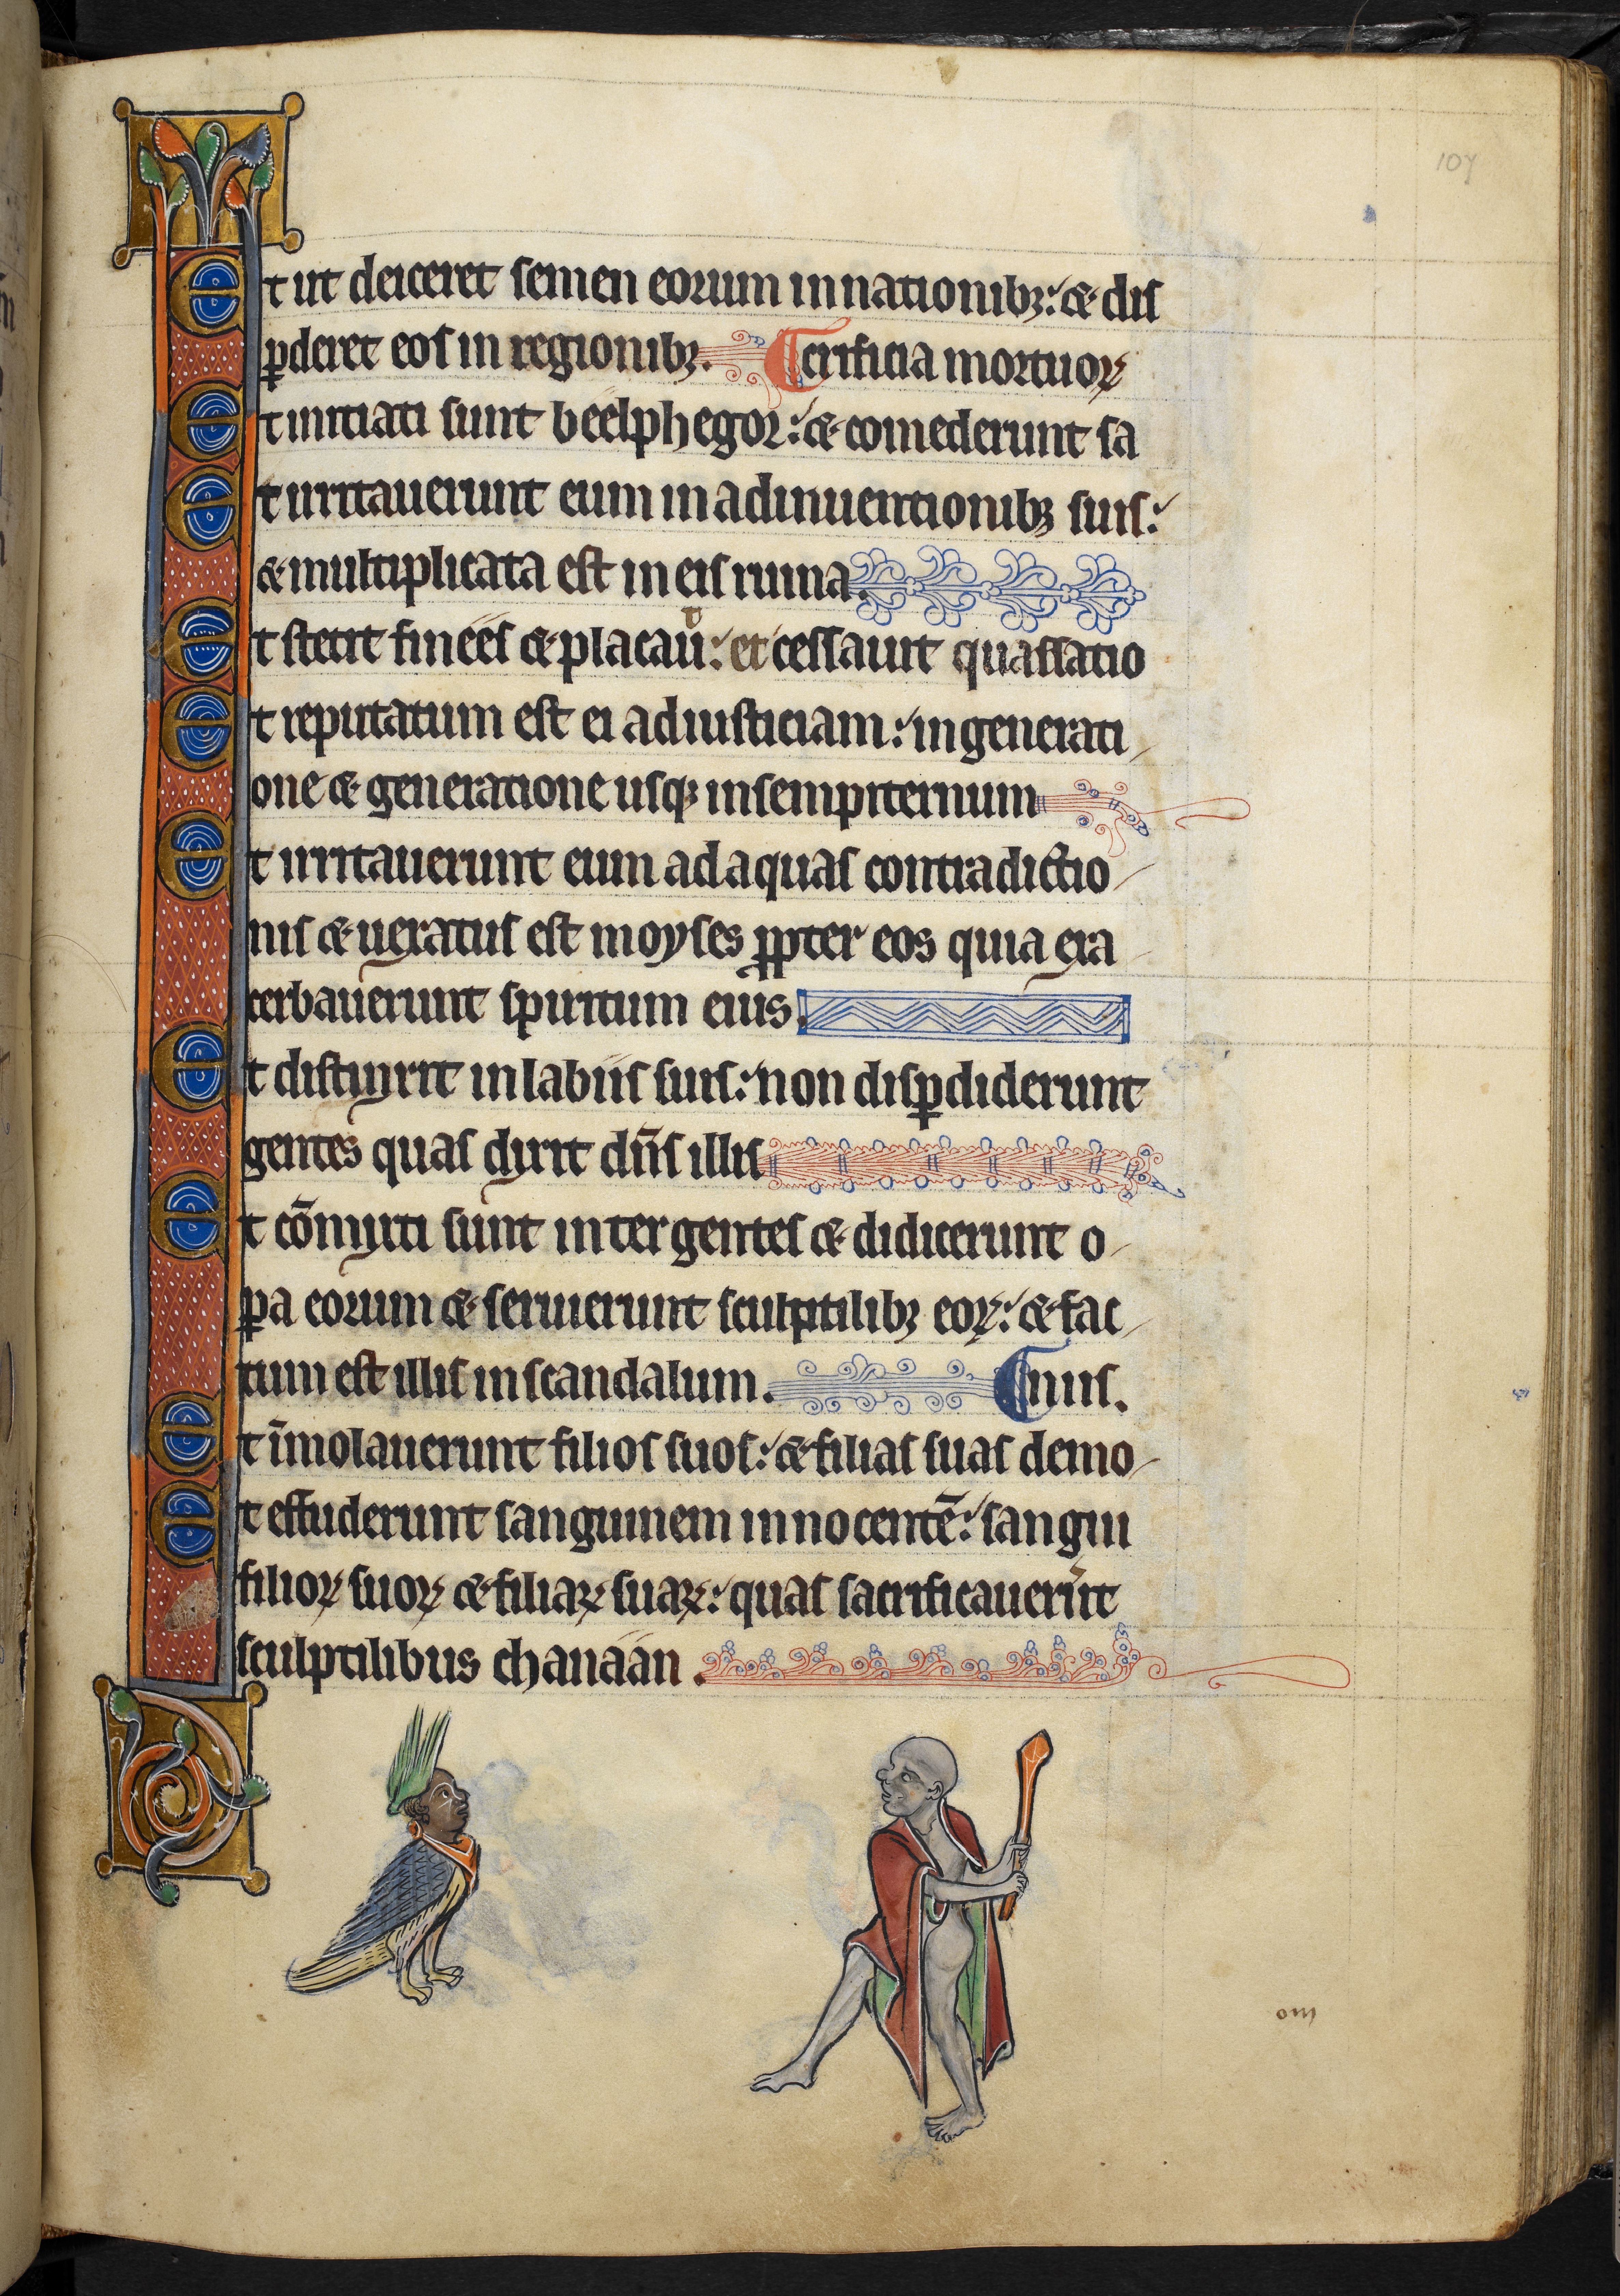 107
Et ut deiceret semen eorum in nationibꝫ: & dis
ꝑderet eos in regionibꝫ. crificia mortuoꝝ
Et initiati sunt beelphegor: & comederunt sa
Et irritauerunt eum in adinuentionibꝫ suis:
& multiplicata est in eis ruina.
Et stetit finees & placauit: et cessauit quassatio
Et reputatum est ei ad iusticiam: in generati
one & generatione usqꝫ in sempiternum
Et irritauerunt eum ad aquas contradictio
nis & uexatus est moyses ꝓpter eos quia exa
cerbauerunt spiritum eius.
Et distinxit in labiis suis: non disꝑdiderunt
gentes quas dixit dn̄s illis
Et cōmixti sunt inter gentes & didicerunt o
ꝑa eorum & seruierunt sculptilibꝫ eoꝝ: & fac
tum est illis in scandalum. niis.
Et īmolauerunt filios suos: & filias suas demo
Et effuderunt sanguinem innocentē: sangui
filioꝝ suoꝝ & filiaꝝ suaꝝ: quas sacrificauerūt
sculptilibus chanaan.
om